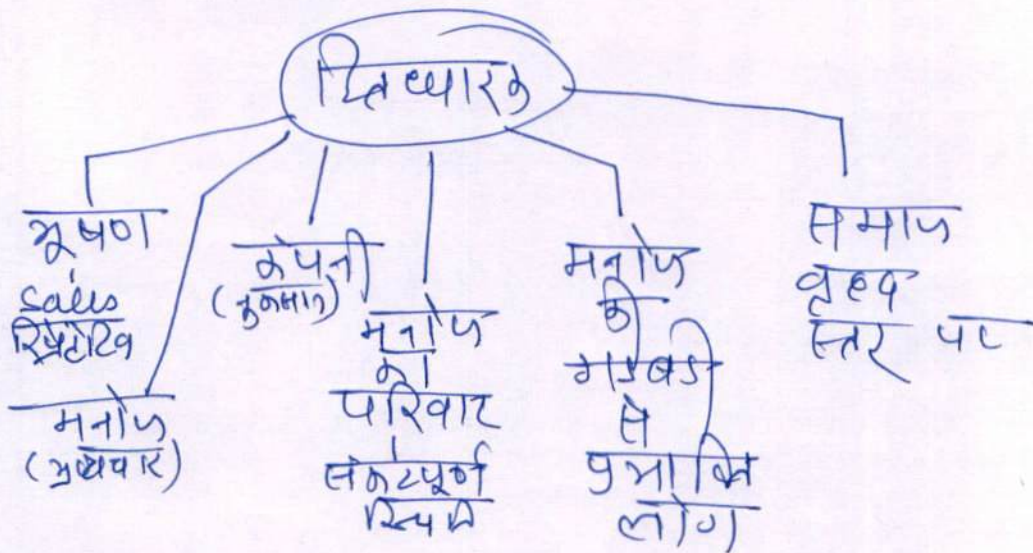 हितधारक
भूषण
sales
रिप्रेटेटिव
मनोज
(भ्रष्टाचार)
कंपनी
(नुकसान)
मनोज
का
परिवार
संकटपूर्ण
स्थिति
मनोज
की
गडबड
से
प्रभावित
लोग
समाज
वृहद
स्तर पर